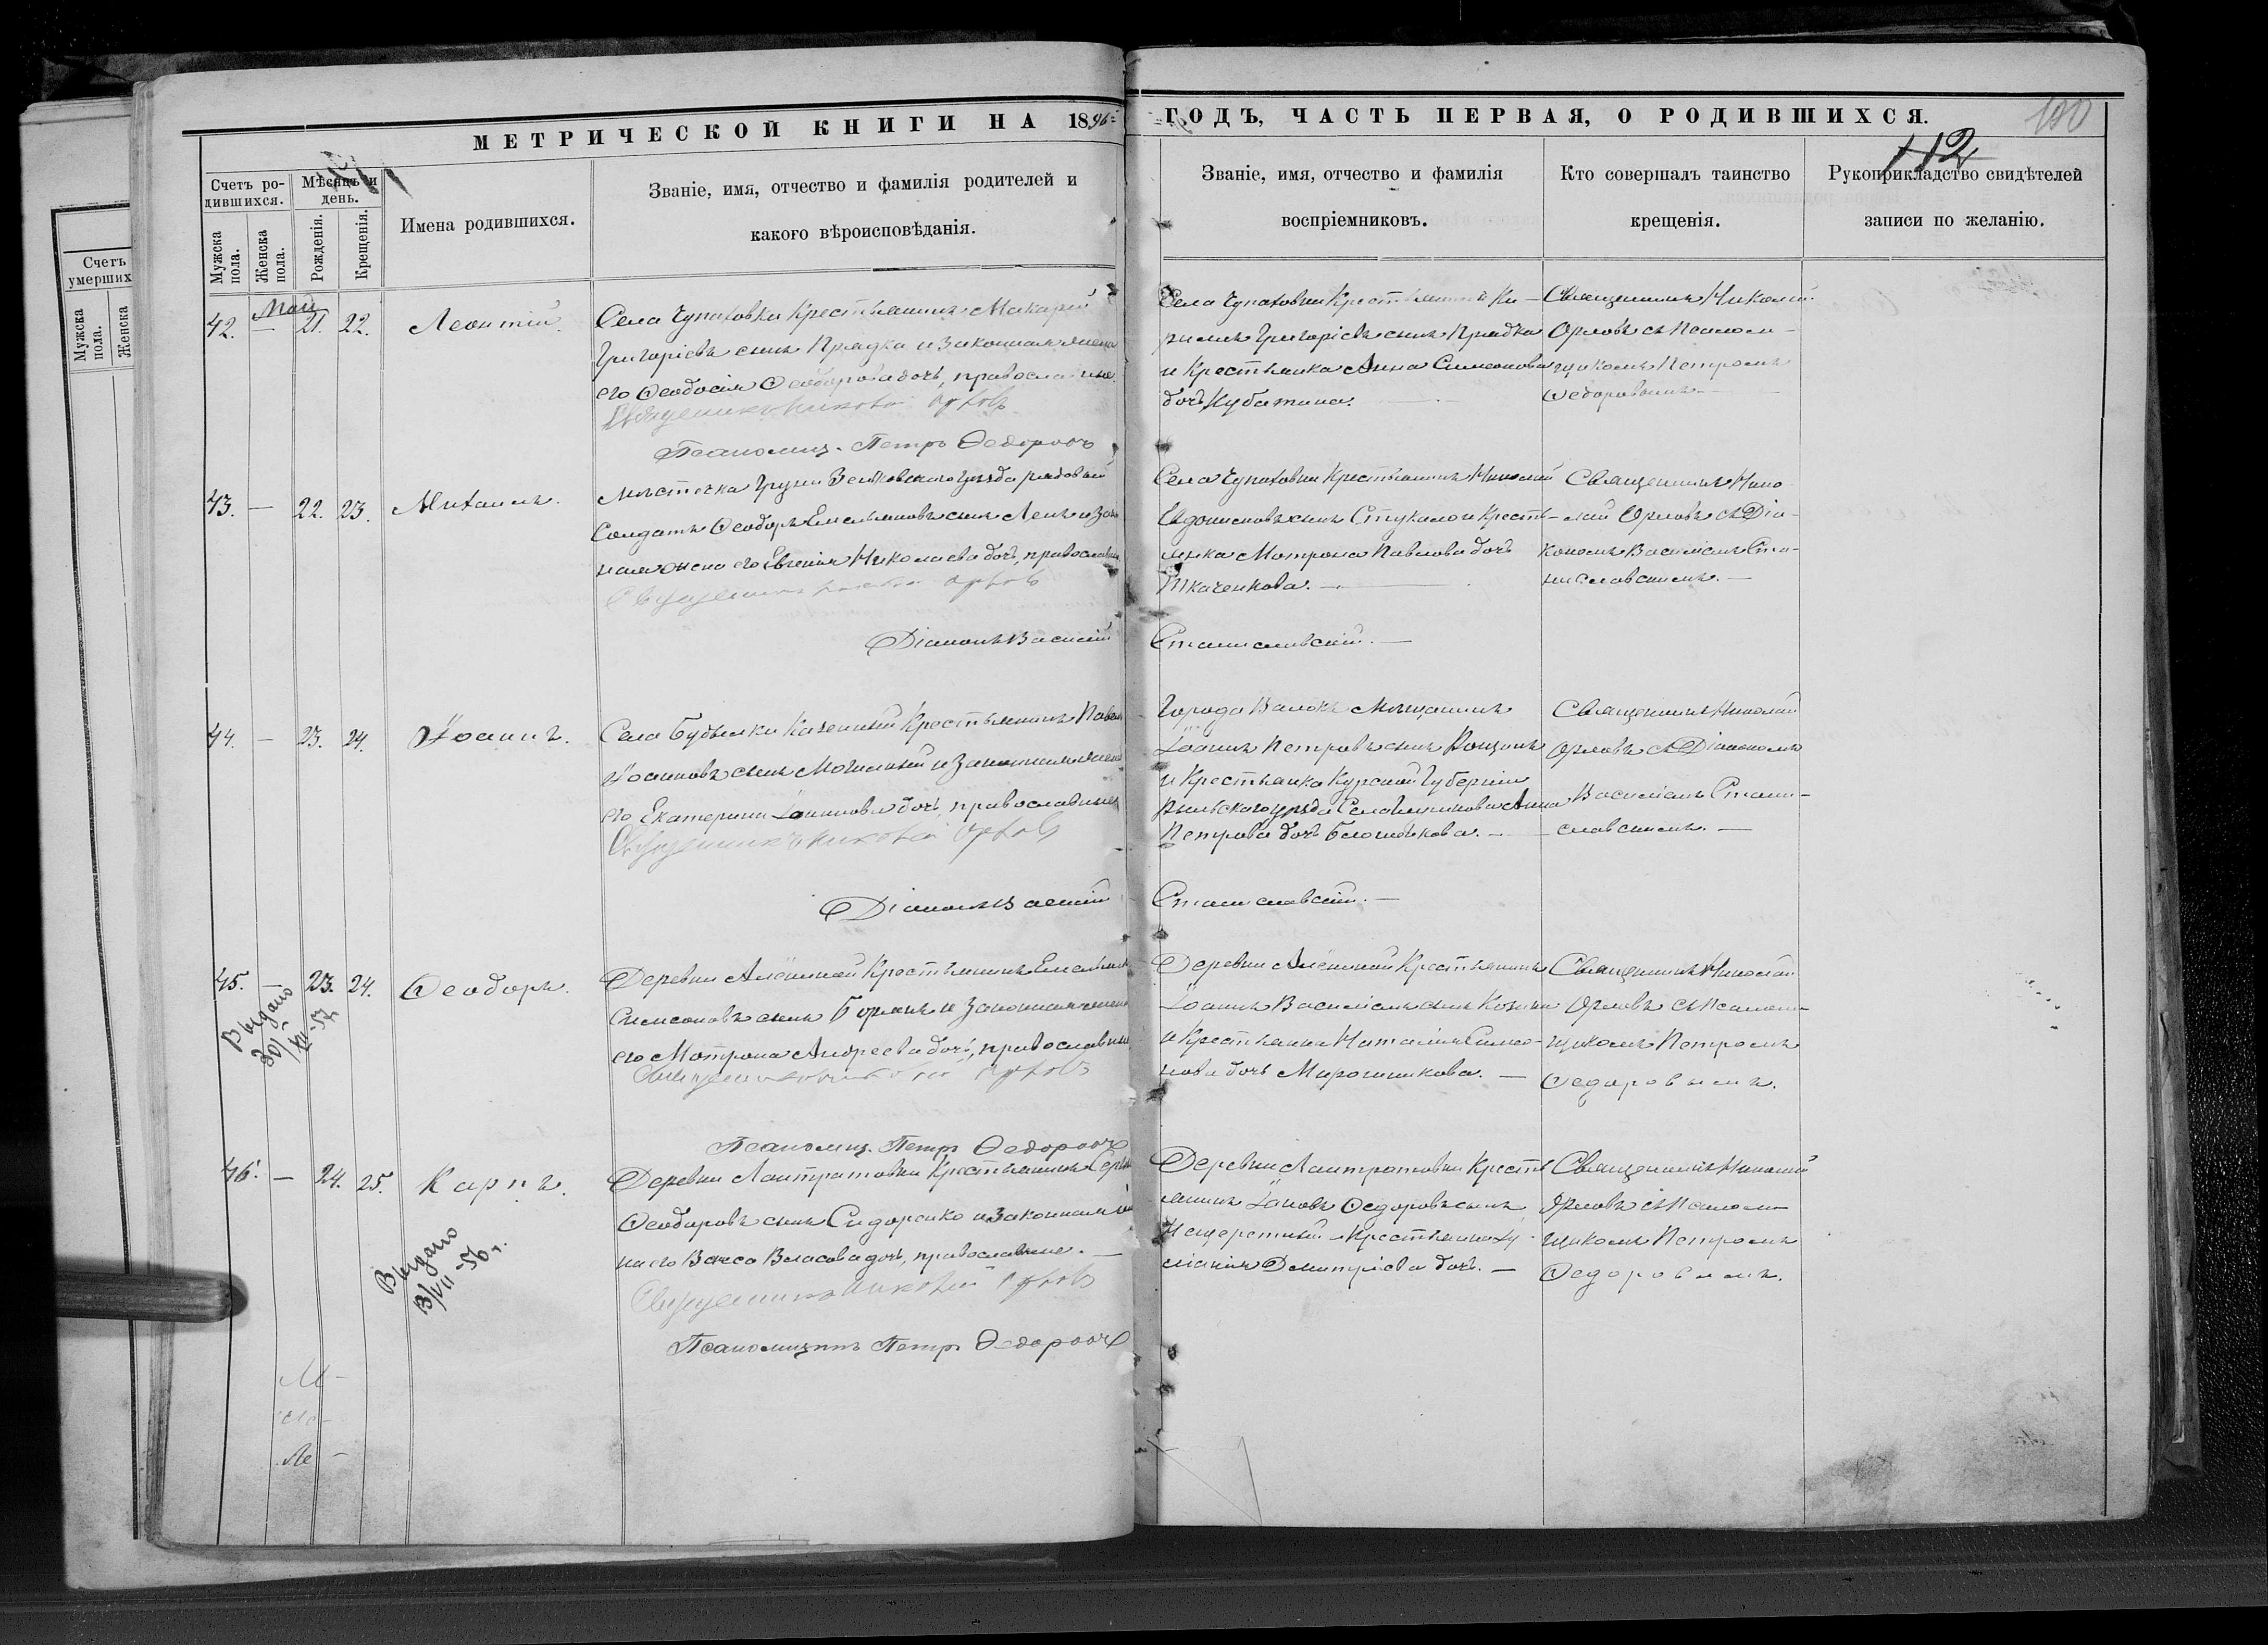 МЕТРИЧЕСКОЙ КНИГИ НА 1896
ГОДЪ, ЧАСТЬ ПЕРВАЯ, О РОДИВШИХСЯ.
100
112
Счетъ
умерших
Мужска
пола.
Женска
Счетъ ро-
дившихся.
Мѣсяцъ и
день.
Мужска
пола.
Женска
пола.
Рожденія.
Крещенія.
Имена родившихся.
Званіе, имя, отчество и фамилія родителей и
какого вѣроисповѣданія.
Званіе, имя, отчество и фамилія
воспріемниковъ.
Кто совершалъ таинство
крещенія.
Рукоприкладство свидѣтелей
записи по желанію.
Май
42. — 21. 22. Леонтій.
Села Чупаховки Крестьянинъ Макарій
Григоріевъ сынъ Прядка и законная жена
его Ѳеодосія Ѳеодорова дочь, православные.
Священникъ Николай Орловъ
Псаломщ. Петръ Федоровъ
Села Чупаховки Крестьянинъ Ки-
риллъ Григоріевъ сынъ Прядка
и Крестьянка Анна Симеонова
дочь
Священникъ Николай
Орловъ съ Псалом-
щикомъ Петромъ
Ѳедоровымъ
43. — 22. 23. Михаилъ.
Мѣстечка Груни Зеньковскаго уѣзда рядовый
Солдатъ Ѳеодоръ Емельяновъ сынъ и зако
ная жена его Евгенія Николаева дочь, православн
Священникъ Орловъ
Діаконъ Василій
Села Чупаховки Крестьянинъ Николай
Евдокимовъ сынъ Стукало и Кресть-
янка Мотрона Павлова дочь
Ткаченкова.
Станиславскій.
Священникъ Нико
лай Орловъ съ Діа-
кономъ Василіемъ Ста-
ниславскимъ.
44. — 23. 24. Іоаннъ.
Села Будылки Казенный Крестьянинъ Павелъ
Іоанновъ сынъ Могильный и законная жена
его Екатерина Іоаннова дочь, православные
Священникъ Николай Орловъ
Діаконъ Василій
Города Валокъ Мѣщанинъ
Іоаннъ Петровъ сынъ
и Крестьянка Курской Губерніи
Рыльскаго уѣзда Села Анна
Петрова дочь
Станиславскій.
Священникъ Николай
Орловъ съ Діакономъ
Василіемъ Стани-
славскимъ.
45. — 23. 24. Ѳеодоръ.
Выдано
30/VII-57
Деревни Алёшной Крестьянинъ Емельянъ
Симеоновъ сынъ и законная жена
его Мотрона Андреева дочь, православные
Священникъ Николай Орловъ
Псаломщ. Петръ Федоровъ
Деревни Алёшной Крестьянинъ
Іоаннъ Василіевъ сынъ
и Крестьянка Наталія Симео-
нова дочь Мирошникова.
Священникъ Николай
Орловъ съ Псалом-
щикомъ Петромъ
Ѳедоровымъ.
46. — 24. 25. Карпъ.
Выдано
3/VII-56 г.
Деревни Лантратовки Крестьянинъ
Ѳеодоровъ сынъ Сидоренко и законная
на его Васса Власова дочь, православные.
Священникъ Николай Орловъ
Псаломщикъ Петръ Федоровъ
Деревни Лантратовки Кресть
янинъ Іаковъ Ѳедоровъ сынъ
и Крестьянка
Димитріева дочь.
Священникъ Николай
Орловъ съ Псалом-
щикомъ Петромъ
Ѳедоровымъ.